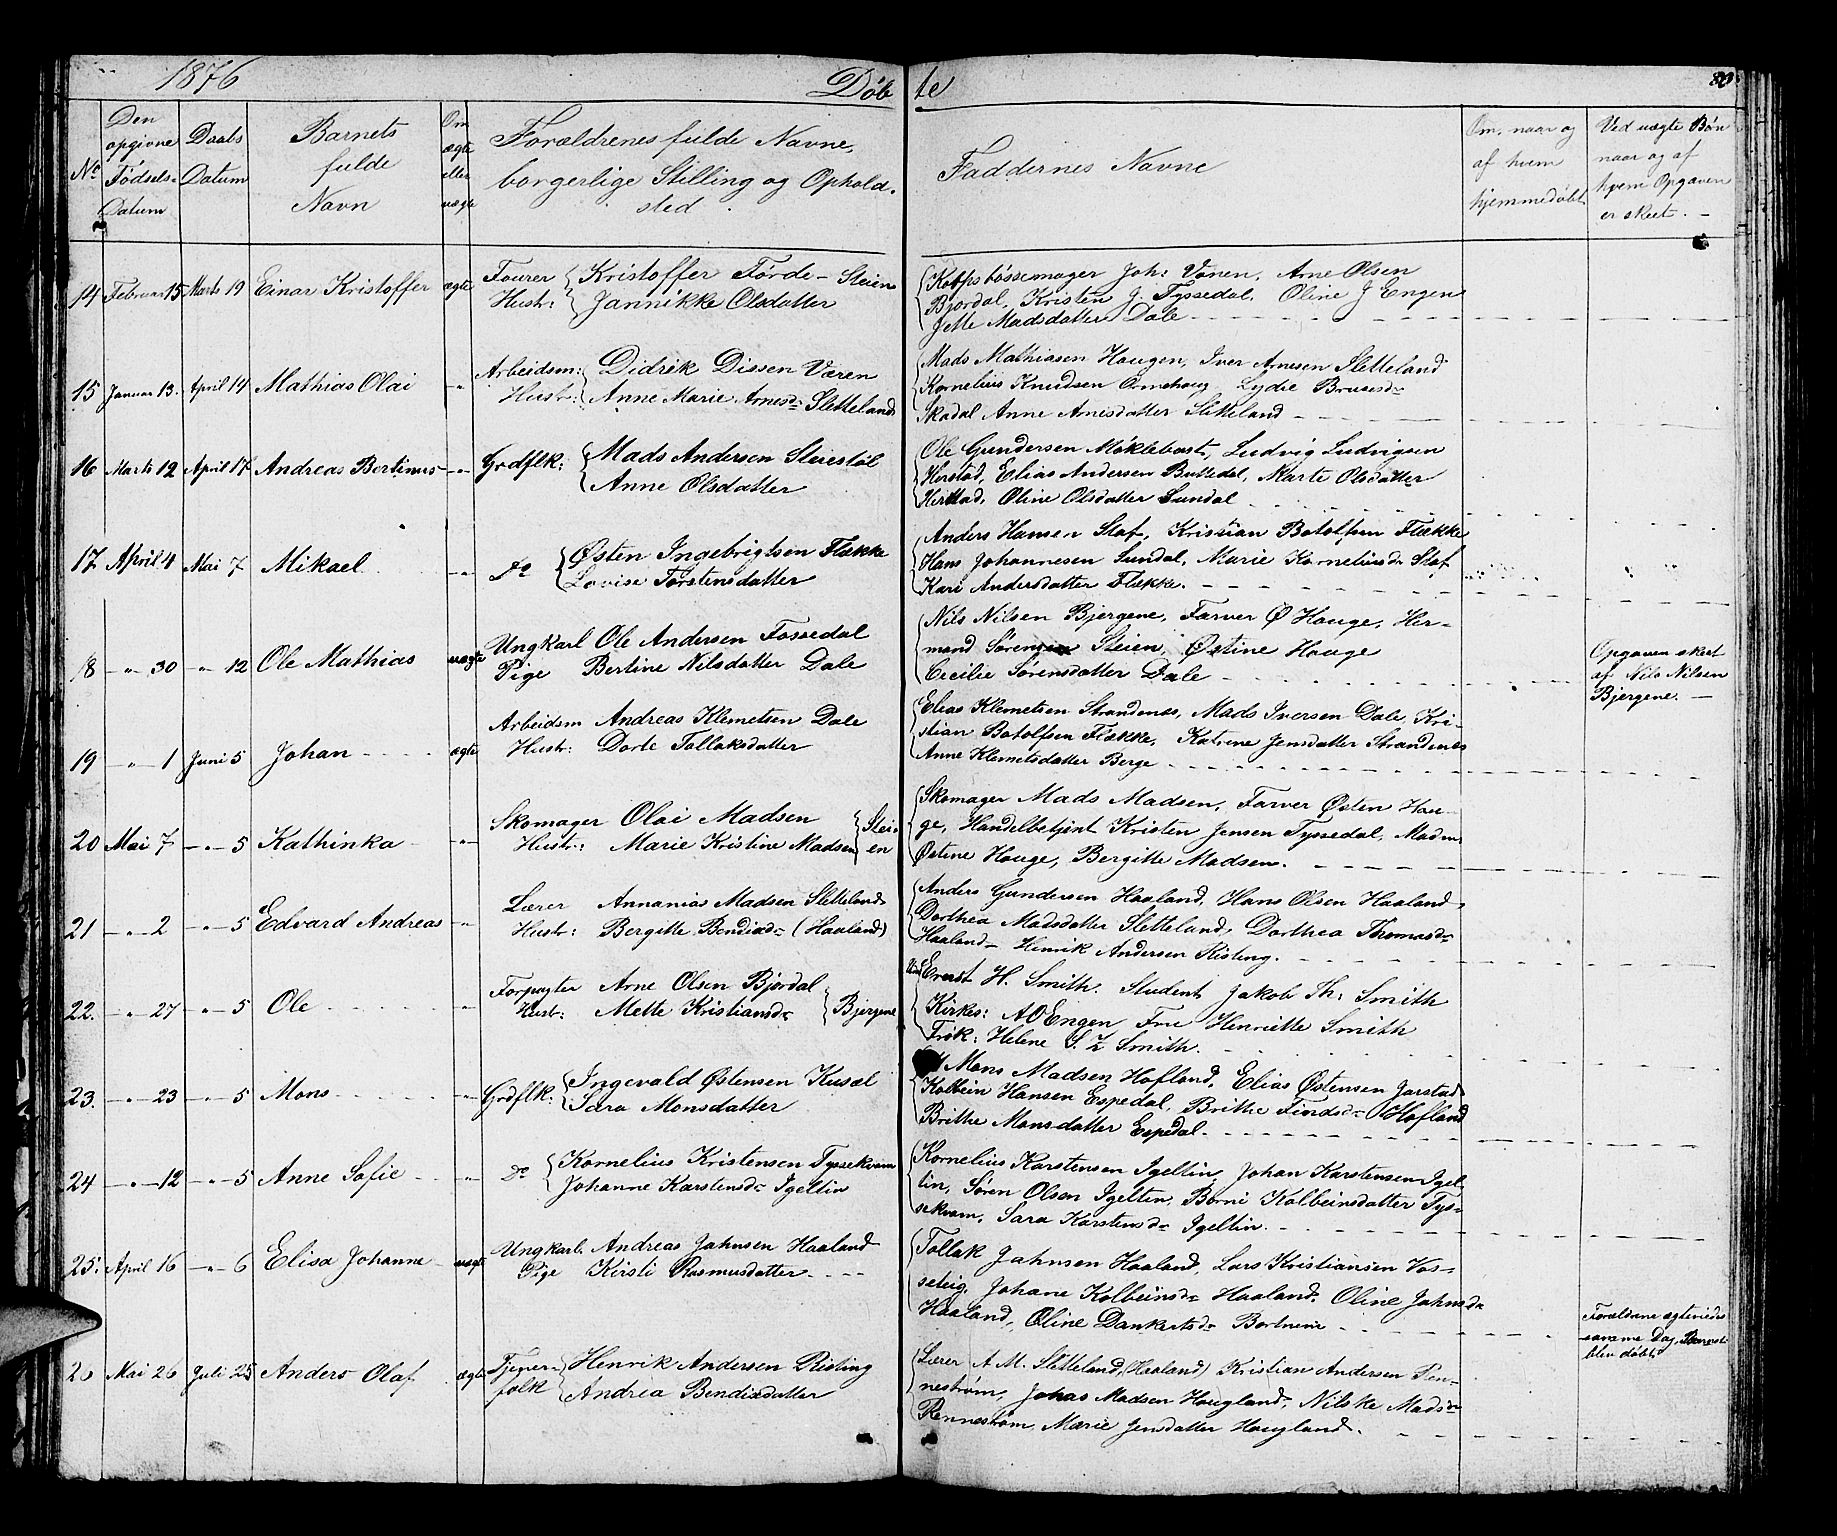 1876 Døbte 80
No
Den opgivne Fødsels-Datum
Daabs Datum
Barnets fulde Navn
Om ægte eller uægte
Forældrenes fulde Navne, borgerlige Stilling og Opholdsted.
Faddernes Navne
Om, naar og af hvem hjemmedøbt
Ved uægte Børn naar og af hvem Opgaven er skeet. -
14 Februar 15 Marts 19 Einar Kristoffer ægte Fourer Kristoffer Førde - Steien
Hustr: Jannikke Olsdatter
Joh: Vonen, Arne Olsen
Bjordal, Kristen J. Tyssedal, Oline J Engen
Jette Madsdatter Dale
15 Januar 13. April 14 Mathias Olai -"- Arbeidsm: Didrik Dissen Væren
Hustr: Anne Marie Arnesdr Sletteland
Mads Mathiasen Haugen, Iver Arnesen Sletteland
Kornelius Knudsen Ormehaug, Lydie Brusesdr
Skadal Anne Arnesdatter Sletteland
16 Marts 12 April 17 Andreas Bertinus -"- Grdflk: Mads Andersen Steiestøl
Anne Olsdatter
Ole Gundersen Møklebust, Ludvig Ludvigsen
Herstad, Elias Andersen Buttedal, Marte Olsdatter
Herstad, Oline Olsdatter Sundal
17 April 4 Mai 7 Mikael -"- Do Østen Ingebrigtsen Flekke
Lovise Torstensdatter
Anders Hansen Staf, Kristian Botolfsen Flekke
Hans Johannesen Sundal, Marie Korneliusdr Staf
Kari Andersdatter Flekke.
18 -"- 30 -"- 12 Ole Mathias uægte Ungkarl Ole Andersen Fossedal
Pige Bertine Nilsdatter Dale
Nils Nilsen Bjergene, Farver Ø Hauge, Her-
mand Sørensen Steien, Østine Hauge
Cecilie Sørensdatter Dale
Opgaven skeet
af Nils Nilsen
Bjergene. -
19 -"- 1 Juni 5 Johan ægte Arbeidsm Andreas Klemetsen Dale
Hustr: Dorte Tollaksdatter
Elias Klemetsen Strandenæs, Mads Iversen Dale, Kri-
stian Botolfsen Flekke, Katrine Jensdatter Strandenæs
Anne Klemetsdatter Berge
20 Mai 7 -"- 5 Kathinka -"- Skomager Olai Madsen
Hustr: Marie Kristine Madsen Stei-
en
Skomager Mads Madsen, Farver Østen Hau-
ge, Handelbetjent Kristen Jensen Tyssedal, Madm
Østine Hauge, Bergitte Madsen.
21 -"- 2 -"- 5 Edvard Andreas -"- Lærer Annanias Madsen Sletteland
Hustr: Bergitte Bendixdr (Haaland)
Anders Gundersen Haaland, Hans Olsen Haaland,
Dorthea Madsdatter Sletteland, Dorthea Thomasdr
Haaland - Henrik Andersen Risting.
22. -"- 27 -"- 5 Ole " Forpagter Arne Olsen Bjordal
Hustr: Mette Kristiansdr Bjergene
Ernst H. Smith. Student Jakob Th: Smith
Kirkes: A O Engen Fru Henriette Smith
Frøk: Helene S. Z Smith.
23. -"- 23 -"- 5 Mons -"- Grdflk: Ingevald Østensen Kusæl
Sara Monsdatter
Mons Madsen Hofland, Elias Østensen Jarstad
Kolbein Hansen Espedal, Brithe Findsdr Hofland
Brithe Monsdatter Espedal.
24 -"- 12 -"- 5 Anne Sofie -"- Do Kornelius Kristensen Tyssekvam
Johanne Karstensdr Igeltin
Kornelius Karstensen Igeltin, Johan Karstensen Igel-
tin, Søren Olsen Igeltin, Børni Kolbeinsdatter Tys-
sekvam, Sara Karstensdr Igeltin.
25. April 16 -"- 6 Elisa Johanne uægte Ungkarl. Andreas Jahnsen Haaland
Pige Kirsti Rasmusdatter
Tollak Jahnsen Haaland, Lars Kristiansen Vos-
seteig, Johane Kolbeinsdr Haaland. Oline Jahnsdr
Haaland, Oline Dankertsdr Bortnene
Forældrene ægteviedes
samme Dag, Barnet
blev døbt.
26 Mai 26 Juli 25 Anders Olaf ægte Tjener-
folk Henrik Andersen Risting
Andrea Bendixdatter
Lærer A. M. Sletteland, (Haaland) Kristian Andersen Ren-
nestrøm, Johas Madsen Haugland, Nilske Madsdr
Rennestrøm, Marie Jensdatter Haugland.